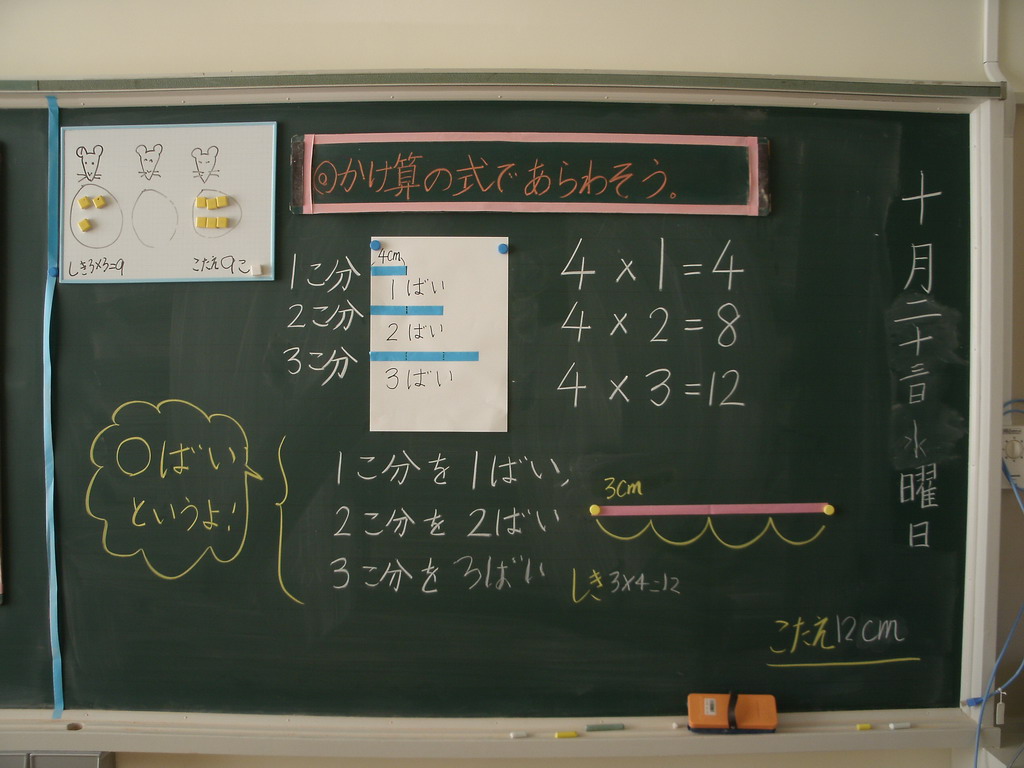 かけ算の式であらわそう。
十月二十三日水曜日
しき3×3=9
こたえ9こ
1こ分
2こ分
3こ分
4cm
1ばい
2ばい
3ばい
4×1=4
4×2=8
4×3=12
○ばい
というよ!
1こ分を1ばい、
2こ分を2ばい
3こ分を3ばい
3cm
しき3×4=12
こたえ12cm